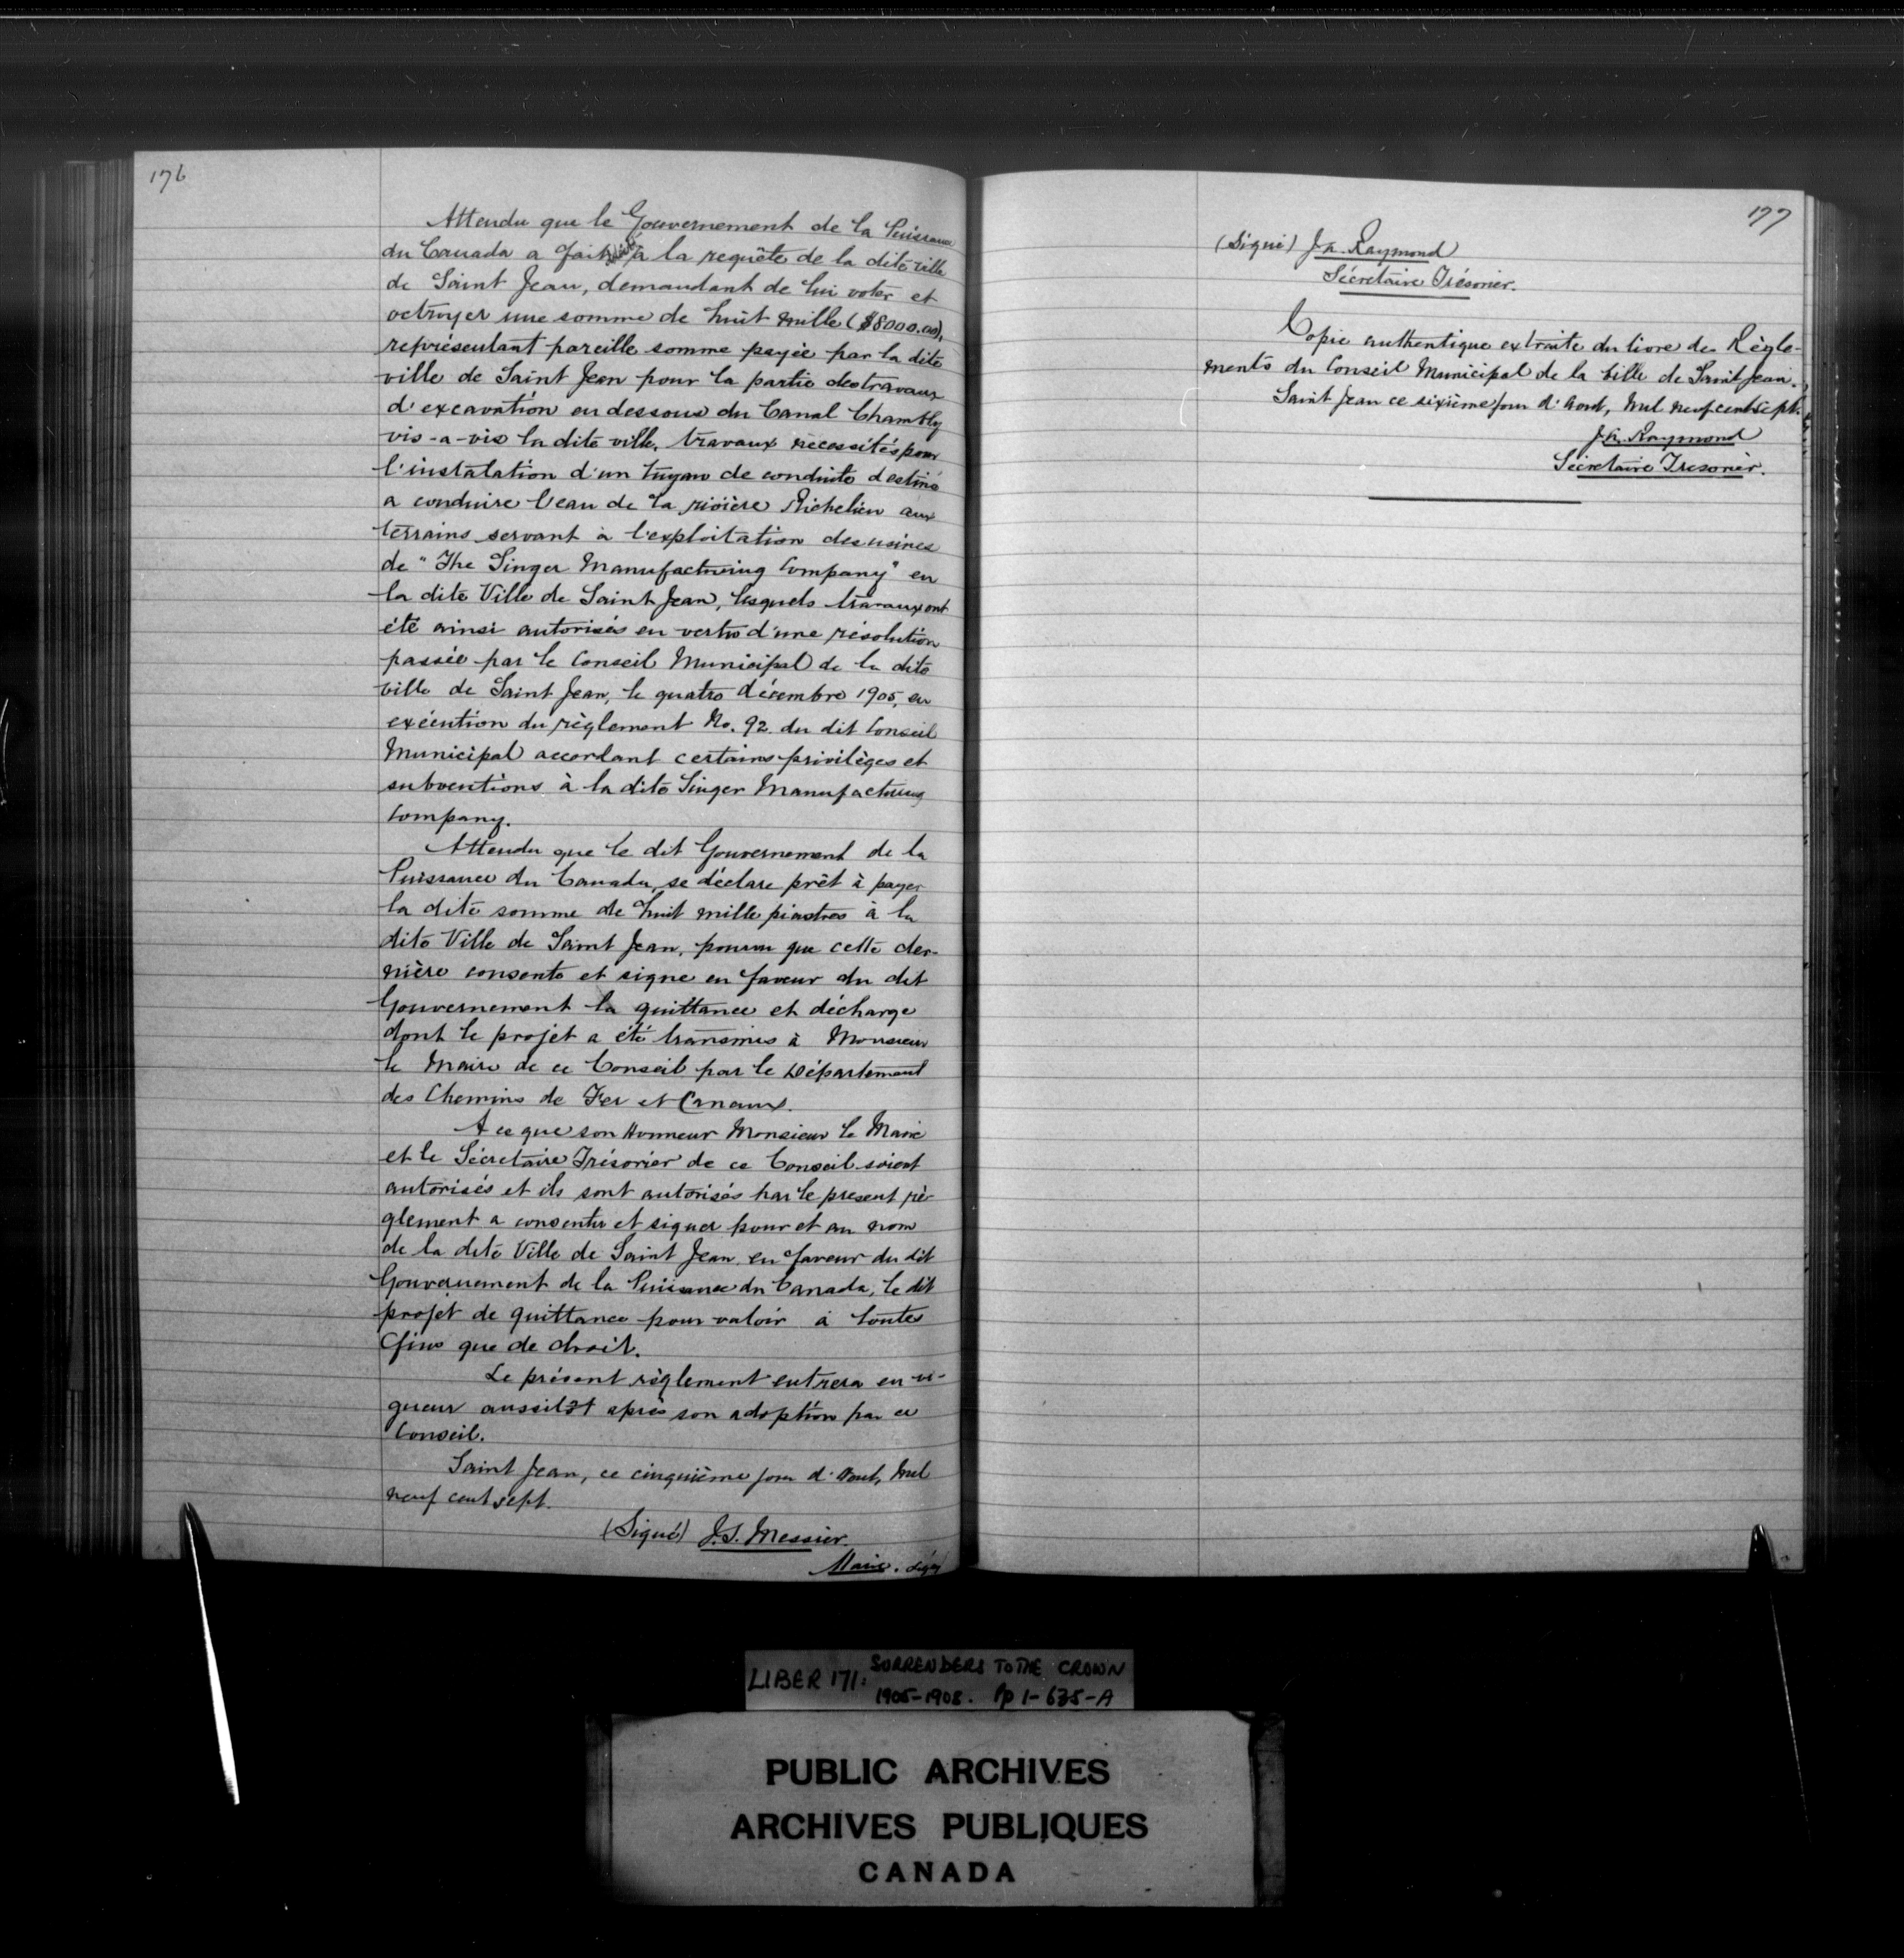 176
Attendu que le Gouvernement de la Puissance
du Canada a fait droit à la requête de la dite ville
de Saint Jean, demandant de lui voter et
octroyer une somme de huit mille ($8000.00),
représentant pareille somme payée par la dite
ville de Saint Jean pour la partie des travaux
d'excavation en dessous du Canal Chambly
vis-a-vis la dite ville, travaux necessités pour
l'instalation d'un tuyau de conduite destiné
a conduire l'eau de la rivière Richelieu aux
terrains servant à l'exploitation des usines
de "The Singer Manufacturing Company" en
la dite Ville de Saint Jean, lesquels travaux ont
été ainsi autorisés en vertu d'une résolution
passée par le Conseil Municipal de la dite
ville de Saint Jean, le quatre décembre 1905, en
exécution du règlement No. 92 du dit Conseil
Municipal accordant certains privilèges et
subventions à la dite Singer Manufacturing
Company.
Attendu que le dit Gouvernement de la
Puissance du Canada, se déclare prêt à payer
la dite somme de huit mille piastres à la
dite Ville de Saint Jean, pourvu que cette der-
nière consente et signe en faveur du dit
Gouvernement la quittance et décharge
dont le projet a été transmis à Monsieur
le Maire de ce Conseil par le Département
des Chemins de Fer et Canaux.
A ce que son Honneur Monsieur le Maire
et le Sécretaire Trésorier de ce Conseil soient
autorisés et ils sont autorisés par le present rè-
glement a consentir et signer pour et au nom
de la dite Ville de Saint Jean en faveur du dit
Gouvernement de la Puissance du Canada, le dit
projet de quittance pour valoir à toutes
fins que de droit.
Le présent règlement entrera en vi-
gueur aussitôt après son adoption par ce
Conseil.
Saint Jean, ce cinquième jour d'Aout, mil
neuf cent sept.
(Signé) J.S. Messier.
Maire.
177
(Signé) J.A. Raymond
Sécretaire Trésorier.
Copie authentique extraite du livre des Règle-
ments du Conseil Municipal de la Ville de Saint Jean.
Saint Jean ce sixième jour d'Aout, mil neuf cent sept.
J.A. Raymond
Sécretaire Tresorier.
LIBER 171: SURRENDERS TO THE CROWN
1905-1908. Pp 1-635-A
PUBLIC ARCHIVES
ARCHIVES PUBLIQUES
CANADA